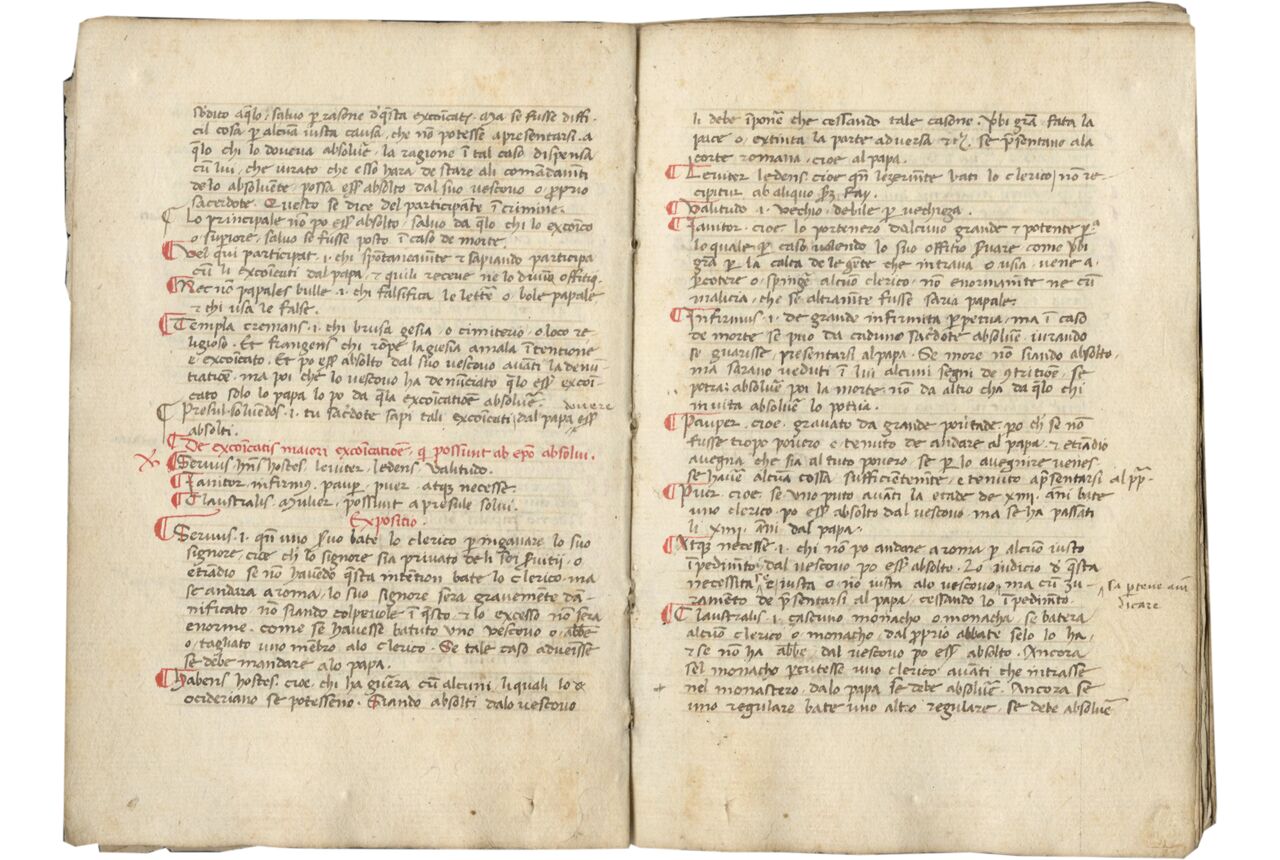 sodito a q̄lo, salvo ꝑ rasone d̄ q̄sta excoīcatͦe. Ma se fusse diffi
cil cosa ꝑ alcuā iusta causa, che nō potesse apresentarsi. a
q̄lo chi lo doveva absolvē, la ragione ī tal caso dispensa
cū lui, che iurato che esso hara de stare ali comandamīti
de lo absolvēte, possa ess̄ absolto dal suo vescovo o ꝓprio
sacerdote. Questo se dice del participāte ī crimine.
Lo principale nō po ess̄ absolto, salvo da q̄lo chi lo excoīco
o suꝑiore, salvo se fusse posto ī caso de morte.
Vel qui participat .i. chi spōtaneamīte & sapiando participa
cū li excoīcati dal papa, & quili receve ne lo divino officio
Nec nō papales bulle .i. chi falsifica le lettē o bole papale
& chi usa le false.
Templa cremans .i. chi brusa gesia, o cimiterio, o loco re
ligioso. Et frangens chi rōpe la giesia a mala ītentione
è excoīcato, Et po ess̄ absolto dal suo vescovo avāti la denū
tiatiōe, ma poi che lo vescovo ha denūciato q̄lo ess̄ excoī
cato solo lo papa lo po da q̄la excoīcatiōe absolvē. dovere
Presul solvēdos .i. tu sac̄dote sapi tali excoīcati dal papa ess̄
absolti.
De excoīcatis maiori excoīcatiōe, q̄ possunt ab ep̄o absolvi.
X. Servus hn̄s hostes, leviter ledens, valitudo.
Ianitor infirmus, paup̄, puer, atq̄ necesse.
Claustralis, mulier, possunt a presule solvi.
Expositio.
Servus .i. qn̄ uno s̄vo bate lo clerico ꝑ inganare lo suo
signore, cioe chi lo signore sia privato deli sei s̄vitii, o
etiādio se nō havēdo q̄sta intētion bate lo clerico. ma
se andara a roma, lo suo signore sera gravemēte dā
nificato nō siando colpeiole ī q̄sto, & lo excesso nō sera
enorme. come se havesse batuto uno vescovo o abbē
o, tagliato uno mēbro alo clerico. Se tale caso advenisse
se debe mandare alo papa.
Habens hostes, cioe, chi ha guēra cū alcuni, li quali lo
ocideriano se potesseno. Siando absolti dalo vescovo
li debe īponē che cessando tale casone. Vbi grā fata la
pace o, extinta la parte adversa &c̄. se p̄sentano ala
corte romana, cioe al papa.
Leviter ledens. cioe qn̄ legermīte bati lo clerico, nō re
cipitur ab aliquo
Valitudo .i. vechio, debile ꝑ vechieza.
Ianitor, cioe lo portenero d'alcuno grande & potente
lo quale ꝑ caso, volendo lo suo offitio s̄vare come v̄bi
grā ꝑ la calta de le gēte che intrava o usia, vene a
ꝑcotere o spingē alcuō clerico, nō enormamīte ne cū
malicia, che se altramīte fusse saria papale.
Infirmus .i. de grande infirmita ꝑpetua, ma ī caso
de morte se puo da caduno sac̄dote absolvē, iurando
se guarisse, presentarsi al papa. Se more nō siando absolto,
ma sarano veduti ī lui alcuni segni de ꝯtritiōe, se
petra absolvē poi la morte, nō da altro cħa da q̄lo chi
in vita absolvē lo potiva.
Pauper, cioe, gravato da grande pov̄tade, po chi se nō
fusse tropo povero e tenuto de andare al papa, & etiādio
avegna che sia al tuto povero, se ꝑ lo avegnire venes
se havē alcuna cossa sufficientemīte, e tenuto ap̄sentarsi al pp̄.
Puer, cioe, se uno puto avāti la etade de xiiii. āni bate
uno clerico, po ess̄ absolto dal vescovo, ma se ha passati
li xiiii. āni dal papa.
Atq̄ necesse .i. chi nō po andare a roma ꝑ alcuō iusto
īpedimīto, dal vescovo po ess̄ absolto. Lo iudicio d̄ q̄sta
necessita se è iusta o nō iusta alo vescovo, ma cū iu- sa ꝑtene aiu
ramēto de p̄sentarsi al papa, cessando lo īpedimīto. dicare
Claustralis .i. cascuno monacho o monacha, se batera
alcuō clerico o monacho, dal ꝓprio abbate selo lo ha,
& se nō ha abbē, dal vescovo po ess̄ absolto. Ancora
sel monacho ꝑcutesse uno clerico avāti che intrasse
nel monastero, dalo papa se debe absolvē. Ancora se
uno regulare bate uno altro regulare, se debe absolvē